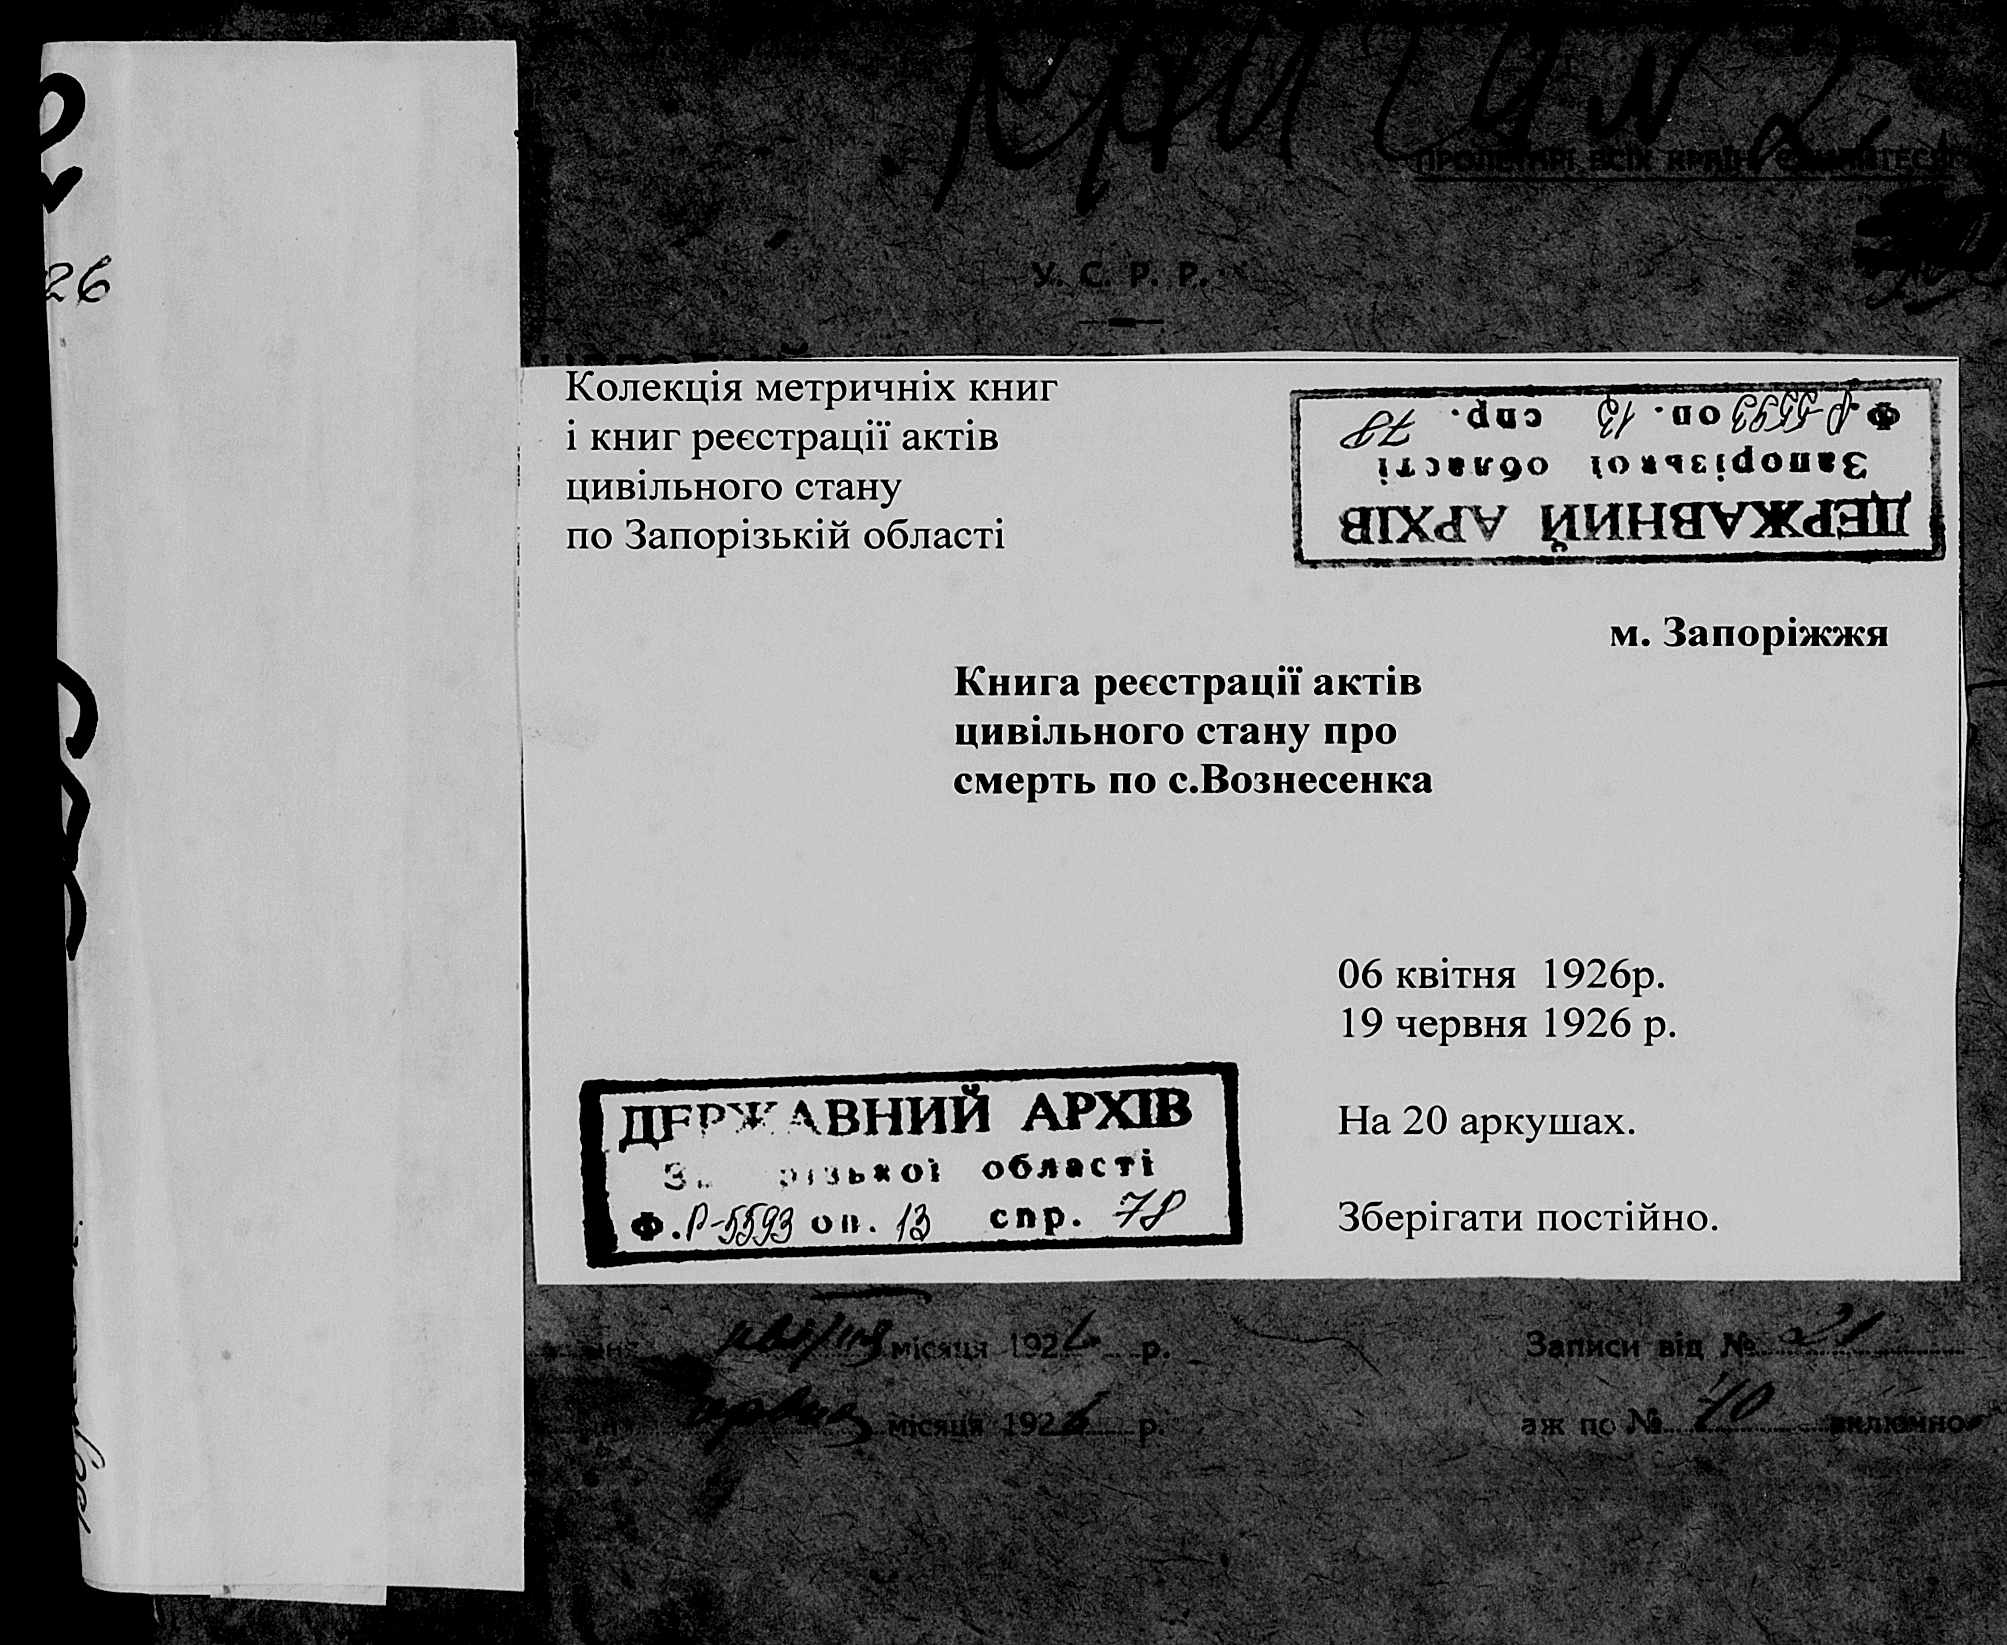 Книга № 2
ПРОЛЕТАРІ ВСІХ КРАЇН, ЄДНАЙТЕСЯ
26
У. С. Р. Р.
Колекція метричніх книг
і книг реєстрації актів
цивільного стану
по Запорізькій області
ДЕРЖАВНИЙ АРХІВ
Запорізької області
Ф. Р-5593 оп. 13 спр. 78
м. Запоріжжя
Книга реєстрації актів
цивільного стану про
смерть по с.Вознесенка
06 квітня 1926р.
19 червня 1926 р.
На 20 аркушах.
Зберігати постійно.
ДЕРЖАВНИЙ АРХІВ
Запорізької області
Ф. Р-5593 оп. 13 спр. 78
квітня місяця 1926 р.
Записи від № 21
червня місяця 1926 р.
аж по № 40 включно